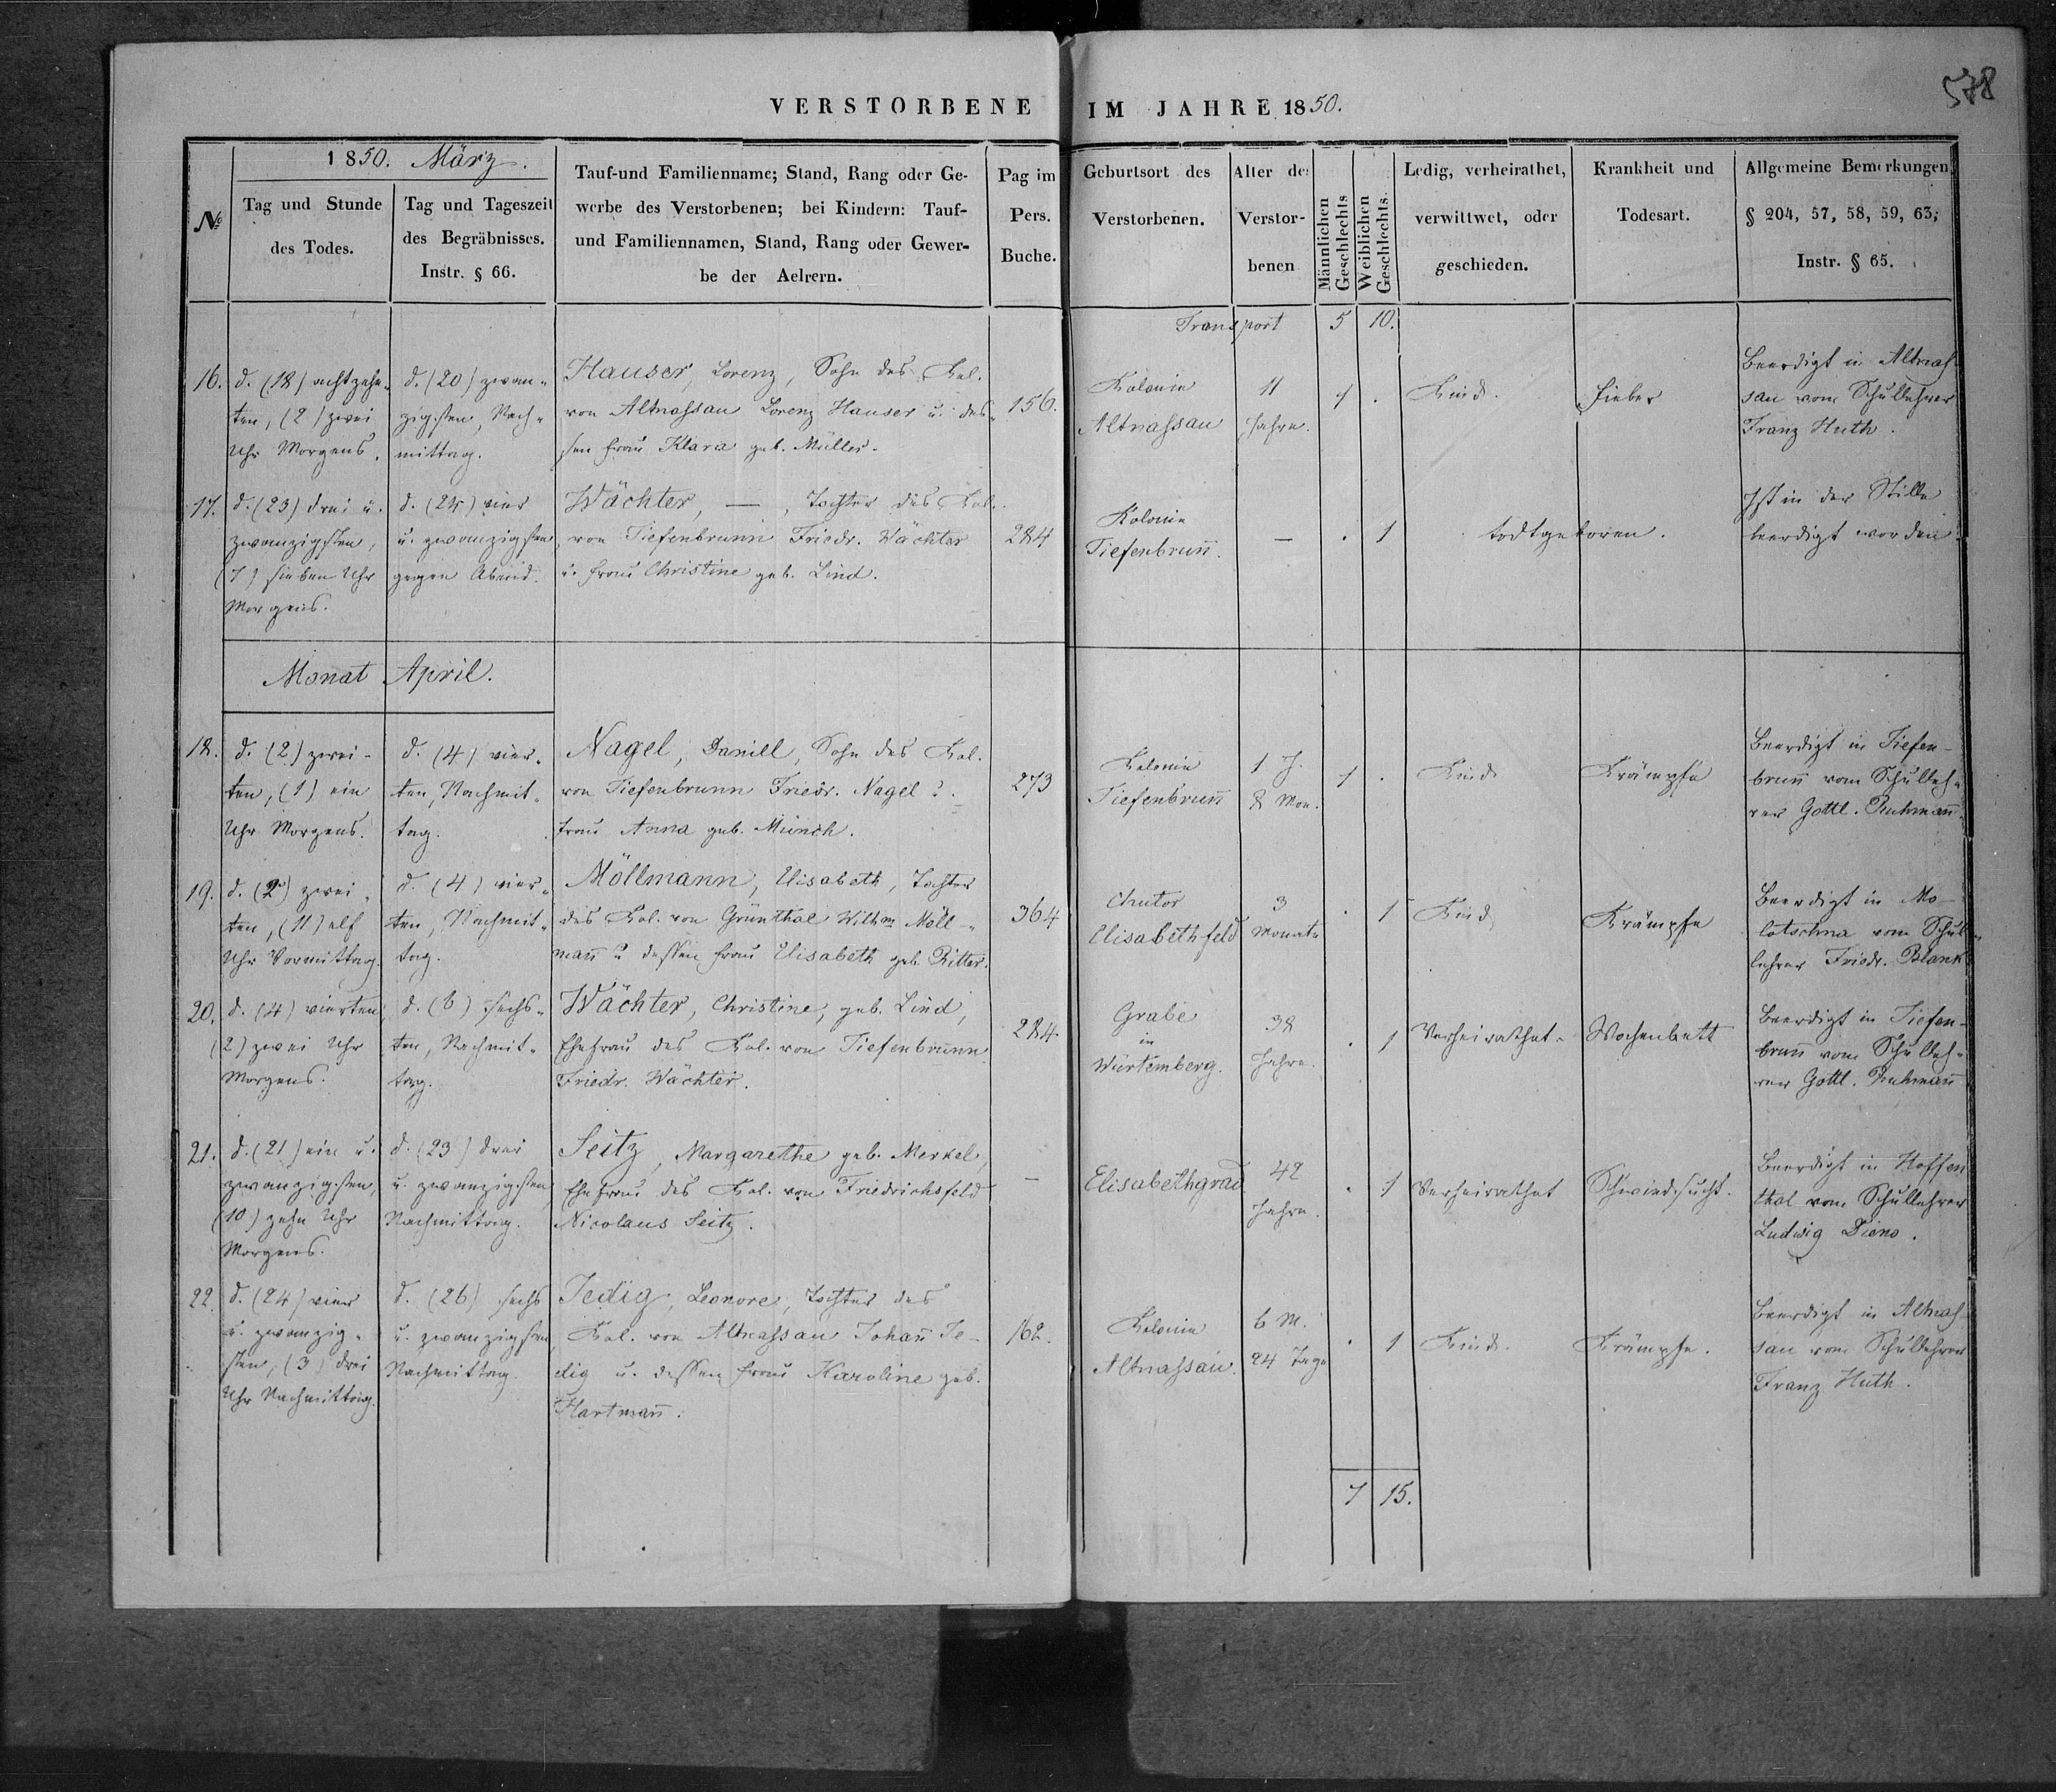 578
VERSTORBENE IM JAHRE 1850.
1850. März.
№
Tag und Stunde
des Todes.
Tag und Tageszeit
des Begräbnisses.
Instr. § 66.
Tauf-und Familienname; Stand, Rang oder Ge-
werbe des Verstorbenen; bei Kindern: Tauf-
und Familiennamen, Stand, Rang oder Gewer-
be der Aelrern.
Pag im
Pers.
Buche.
Geburtsort des
Verstorbenen.
Alter des
Verstor-
benen
Männlichen
Geschlechts
Weiblichen
Geschlechts.
Ledig, verheirathet,
verwittwet, oder
geschieden.
Krankheit und
Todesart.
Allgemeine Bemerkungen
§ 204, 57, 58, 59, 63,
Instr. § 65.
Transport 5 10.
16.
d. (18) achtzehn-
ten, (2) zwei
Uhr Morgens.
d. (20) zwan-
zigsten, Nach-
mittag.
Hauser, Lorenz, Sohn des Kol.
von Altnassau Lorenz Hauser u. des-
sen Frau Klara geb. Müller.
156.
Kolonie
Altnassau
11
Jahre.
1 .
Kind.
Fieber
Beerdigt in Altnas-
sau vom Schullehrer
Franz Huth.
17.
d. (23) drei u.
zwanzigsten,
(7) sieben Uhr
Morgens.
d. (24) vier
u. zwanzigsten
gegen Abend.
Wächter, —, Tochter des Kol.
von Tiefenbrunn Friedr. Wächter
u. Frau Christine geb. Lind.
284
Kolonie
Tiefenbrun̄.
—
. 1
todtgeboren.
Ist in der Stille
beerdigt worden.
Monat April.
18.
d. (2) zwei-
ten, (1) ein
Uhr Morgens.
d. (4) vier-
ten, Nachmit-
tag.
Nagel, Daniell, Sohn des Kol.
von Tiefenbrunn Friedr. Nagel u.
Frau Anna geb. Münch.
273
Kolonie
Tiefenbrun̄
1 J.
8 Mon.
1 .
Kind
Krämpfe
Beerdigt in Tiefen-
brun̄ vom Schulleh-
rer Gottl. Ruhman̄.
19.
d. (2) zwei-
ten, (11) elf
Uhr Vormittag.
d. (4) vier-
ten, Nachmit-
tag.
Möllmann, Elisabeth, Tochter
des Kol. von Grünthal Wilhm Möll-
man̄ u. dessen Frau Elisabeth geb. Ritter.
364
Chutor
Elisabethfeld
3
Monate
. 1
Kind
Krämpfe
Beerdigt in Mo-
lotschna vom Schul-
lehrer Friedr. Blank
20.
d. (4) vierten,
(2) zwei Uhr
Morgens.
d. (6) sechs-
ten, Nachmit-
tag.
Wächter, Christine, geb. Lind,
Ehefrau des Kol. von Tiefenbrunn
Friedr. Wächter.
284.
Grabe
in
Würtemberg.
38
Jahre.
. 1
Verheirathet.
Wochenbett
Beerdigt in Tiefen-
brun̄ vom Schulleh-
rer Gottl. Ruhman̄
21.
d. (21) ein u.
zwanzigsten,
(10) zehn Uhr
Morgens.
d. (23) drei
u. zwanzigsten
Nachmittag.
Seitz, Margarethe geb. Merkel,
Ehefrau des Kol. von Friedrichsfeld
Nicolaus Seitz.
—
Elisabethgrad
42
Jahre.
. 1
Verheirathet
Schwindsucht.
Beerdigt in Hoffen
thal vom Schullehrer
Ludwig
22.
d. (24) vier
u. zwanzig-
sten, (3) drei
Uhr Nachmittag.
d. (26) sechs
u. zwanzigsten
Nachmittag.
Jedig, Leonore, Tochter des
Kol. von Altnassau Johan̄ Je-
dig u. dessen Frau Karoline geb.
Hartman̄.
162.
Kolonie
Altnassau.
6 M.
24 Tage
. 1
Kind.
Krämpfe.
Beerdigt in Altnas-
sau vom Schullehrer
Franz Huth.
7 15.